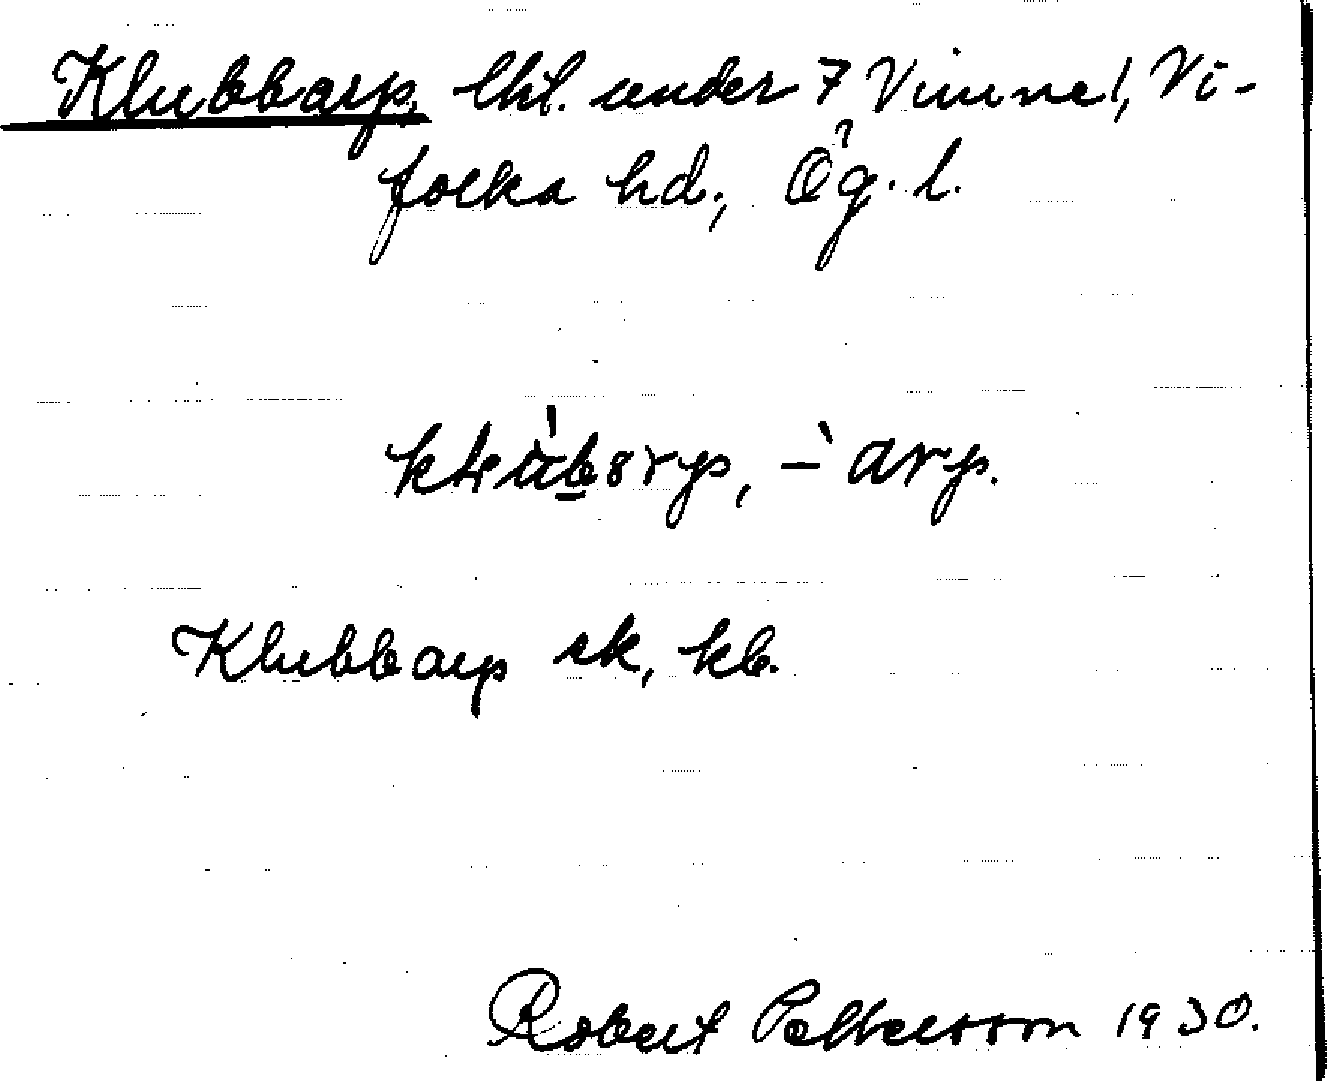 Klubbarp, lht. under 7 Vinne!, Vi-
folka hd., Ög. l.
-àrp.
Klubbarp sk, kb.
Robert Pettersson 1930.